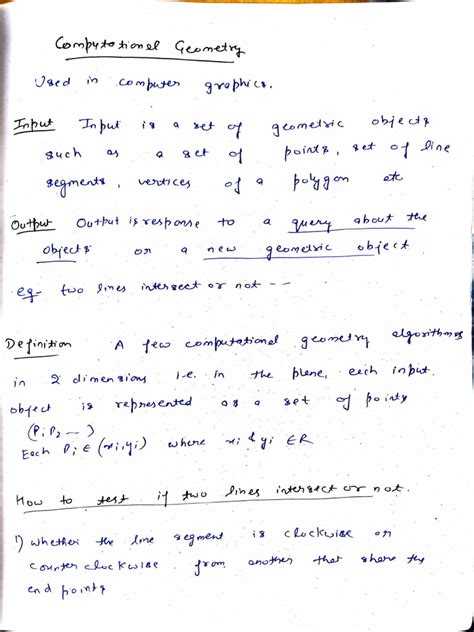 Computational Geometry
Used in computer graphics.
Input Input is a set of geometric objects
such as a set of points, set of line
segments, vertices of a polygon etc
Output Output is response to a query about the
objects or a new geometric object
eg- two lines intersect or not --
Definition A few computational geometry algorithms
in 2 dimensions i.e. in the plane, each input
object is represented as a set of points
(P1 P2 --- )
Each Pi ∈ (xi, yi) where xi & yi ∈ R
How to test if two lines intersect or not.
1) Whether the line segment is clockwise or
counter clockwise from another that share the
end points